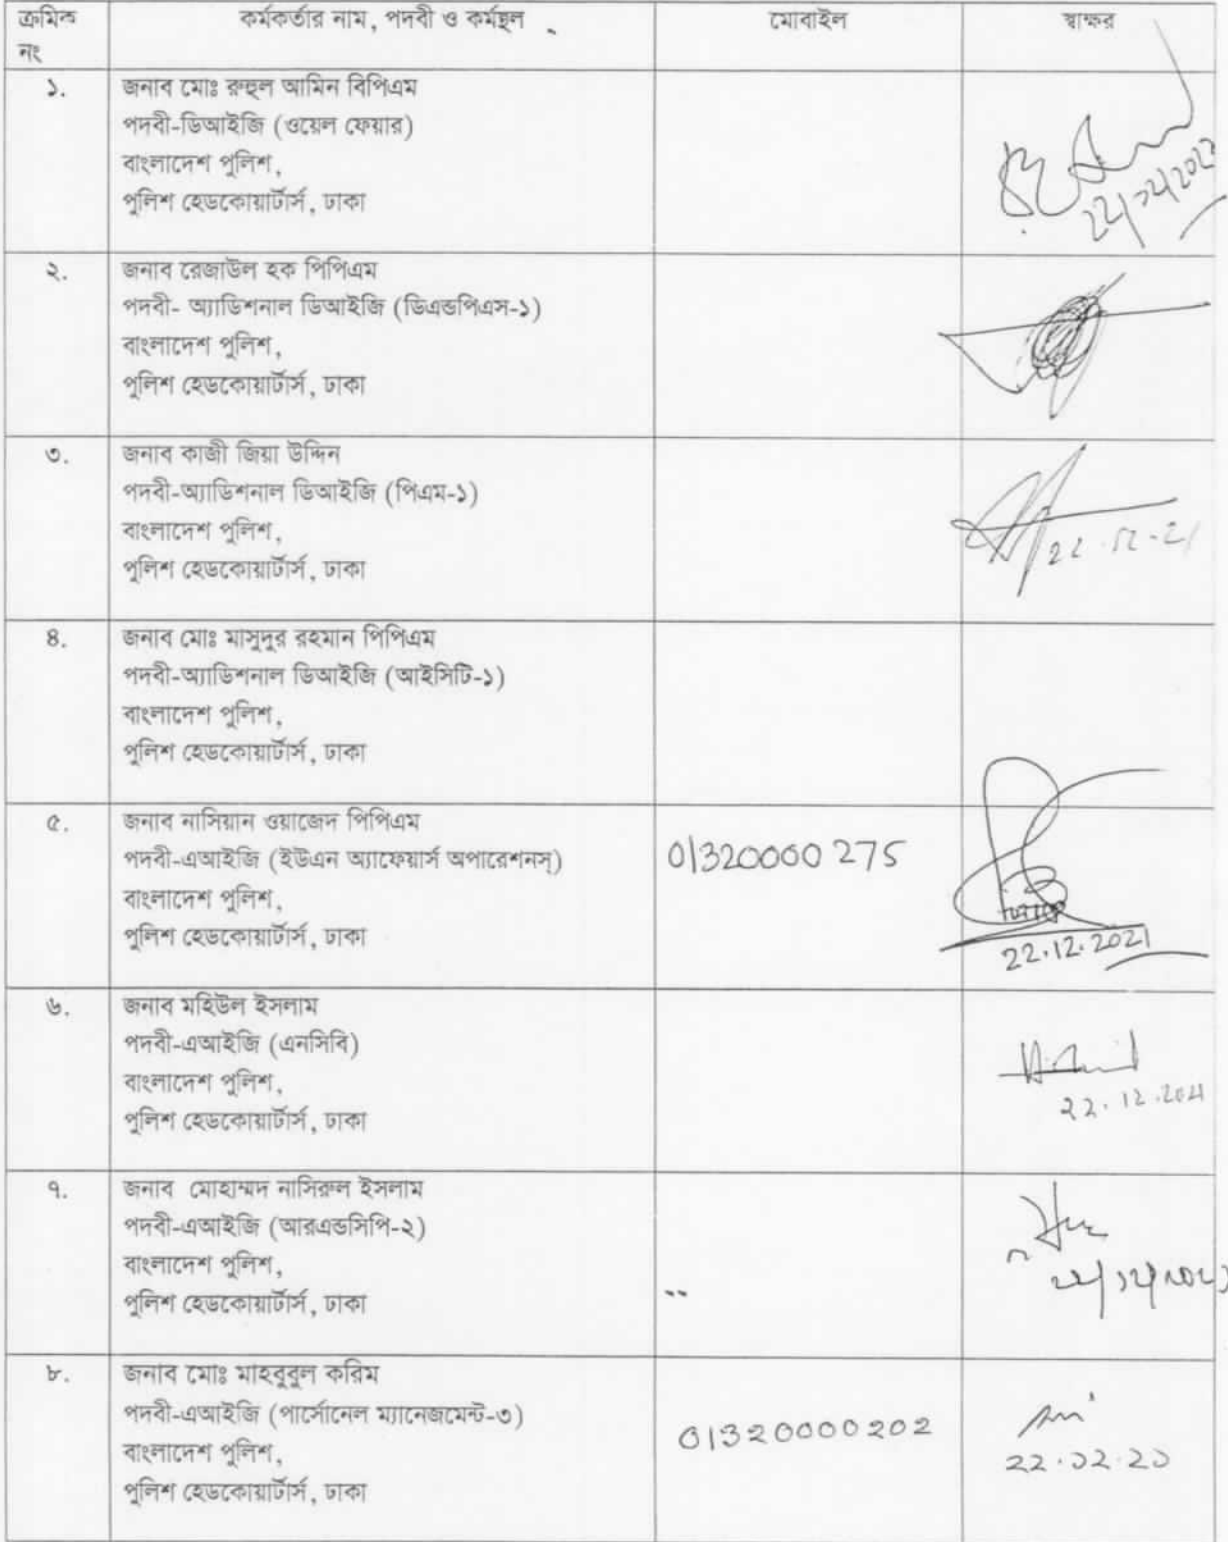 ক্রমিক নং কর্মকর্তার নাম, পদবী ও কর্মস্থল মোবাইল স্বাক্ষর
১. জনাব মোঃ রুহুল আমিন বিপিএম
পদবী-ডিআইজি (ওয়েল ফেয়ার)
বাংলাদেশ পুলিশ,
পুলিশ হেডকোয়ার্টার্স, ঢাকা
২. জনাব রেজাউল হক পিপিএম
পদবী- অ্যাডিশনাল ডিআইজি (ডিএন্ডপিএস-১)
বাংলাদেশ পুলিশ,
পুলিশ হেডকোয়ার্টার্স, ঢাকা
৩. জনাব কাজী জিয়া উদ্দিন
পদবী-অ্যাডিশনাল ডিআইজি (পিএম-১)
বাংলাদেশ পুলিশ,
22.12.21
পুলিশ হেডকোয়ার্টার্স, ঢাকা
৪. জনাব মোঃ মাসুদুর রহমান পিপিএম
পদবী-অ্যাডিশনাল ডিআইজি (আইসিটি-১)
বাংলাদেশ পুলিশ,
পুলিশ হেডকোয়ার্টার্স, ঢাকা
৫. জনাব নাসিয়ান ওয়াজেদ পিপিএম
পদবী-এআইজি (ইউএন অ্যাফেয়ার্স অপারেশনস্) 01320000275
বাংলাদেশ পুলিশ,
পুলিশ হেডকোয়ার্টার্স, ঢাকা 22.12.2021
৬. জনাব মহিউল ইসলাম
পদবী-এআইজি (এনসিবি)
বাংলাদেশ পুলিশ,
22.12.2021
পুলিশ হেডকোয়ার্টার্স, ঢাকা
৭. জনাব মোহাম্মদ নাসিরুল ইসলাম
পদবী-এআইজি (আরএন্ডসিপি-২)
বাংলাদেশ পুলিশ,
পুলিশ হেডকোয়ার্টার্স, ঢাকা
৮. জনাব মোঃ মাহবুবুল করিম
পদবী-এআইজি (পার্সোনেল ম্যানেজমেন্ট-৩) 01320000202
বাংলাদেশ পুলিশ, ২২.১২.২১
পুলিশ হেডকোয়ার্টার্স, ঢাকা